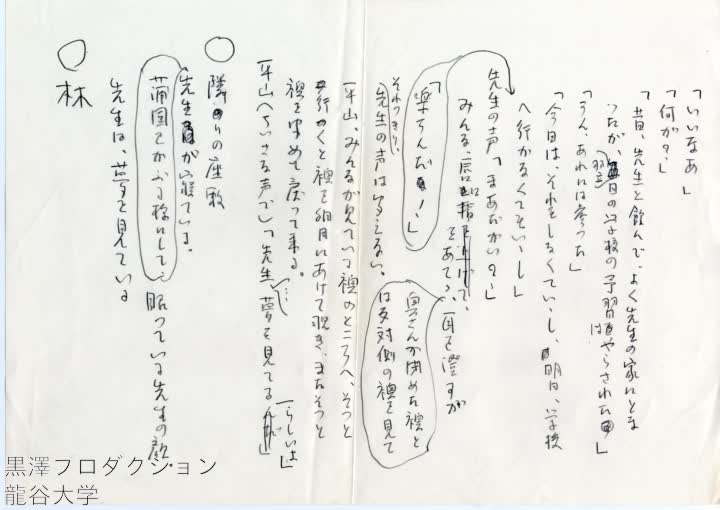 「いいなあ」
「何が？」
「昔、先生と飲んで、よく先生の家にとま
ったが、翌日の学校の予習はやらされた」
「うん、あれには参った」
「今日は、それをしなくていいし、明日、学校
へ行かなくてもいいし」
先生の声「まあだかい？」
みんな、唇に指をあてゝ、耳を澄すが
「楽ちんだ！」
それっきり、
先生の声は聞えない。
奥さんが閉めた襖と
は反対側の襖を見て
平山、みんなが見ている襖のところへ、そっと
行くと襖を細目にあけて覗き、またそっと
襖を閉めて戻って来る。
平山へちいさな声で「先生…夢を見てる
らしいよ」
○ 隣りの座敷
先生が寝ている。
蒲団をかぶる様にして 眠っている先生の顔。
先生は、夢を見ている
○ 林
黒澤プロダクション
龍谷大学